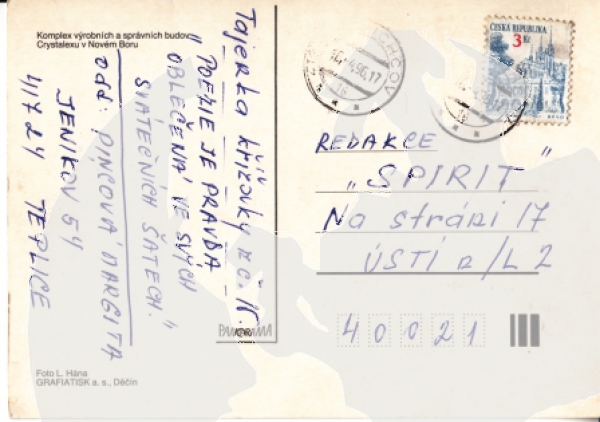 Komplex výrobních a správních budov
Crystalexu v Novém Boru
Tajenka křížovky z č. 15.
„POEZIE JE PRAVDA
OBLEČENÁ VE SVÝCH
SVÁTEČNÍCH ŠATECH."
odd: PINCOVÁ MARGITA
JENIKOV 54
417 24 TEPLICE
Foto L. Hána
GRAFIATISK a. s., Děčín
PANORAMA
ČESKÁ REPUBLIKA
3 Kč
BRNO
REDAKCE
„SPIRIT"
Na stráni 17
ÚSTÍ n/L 2
40021